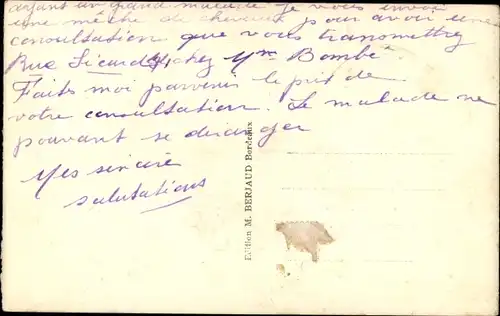 ayant un grand malade je vous envoi
une mèche de cheveux pour avoir une
consultation que vous transmettrez
Rue Sicard chez Mme Bombé
Faites moi parvenir le prix de
votre consultation. Le malade ne
pouvant se déranger
Mes sincère
salutations
Edition M. BERJAUD Bordeaux